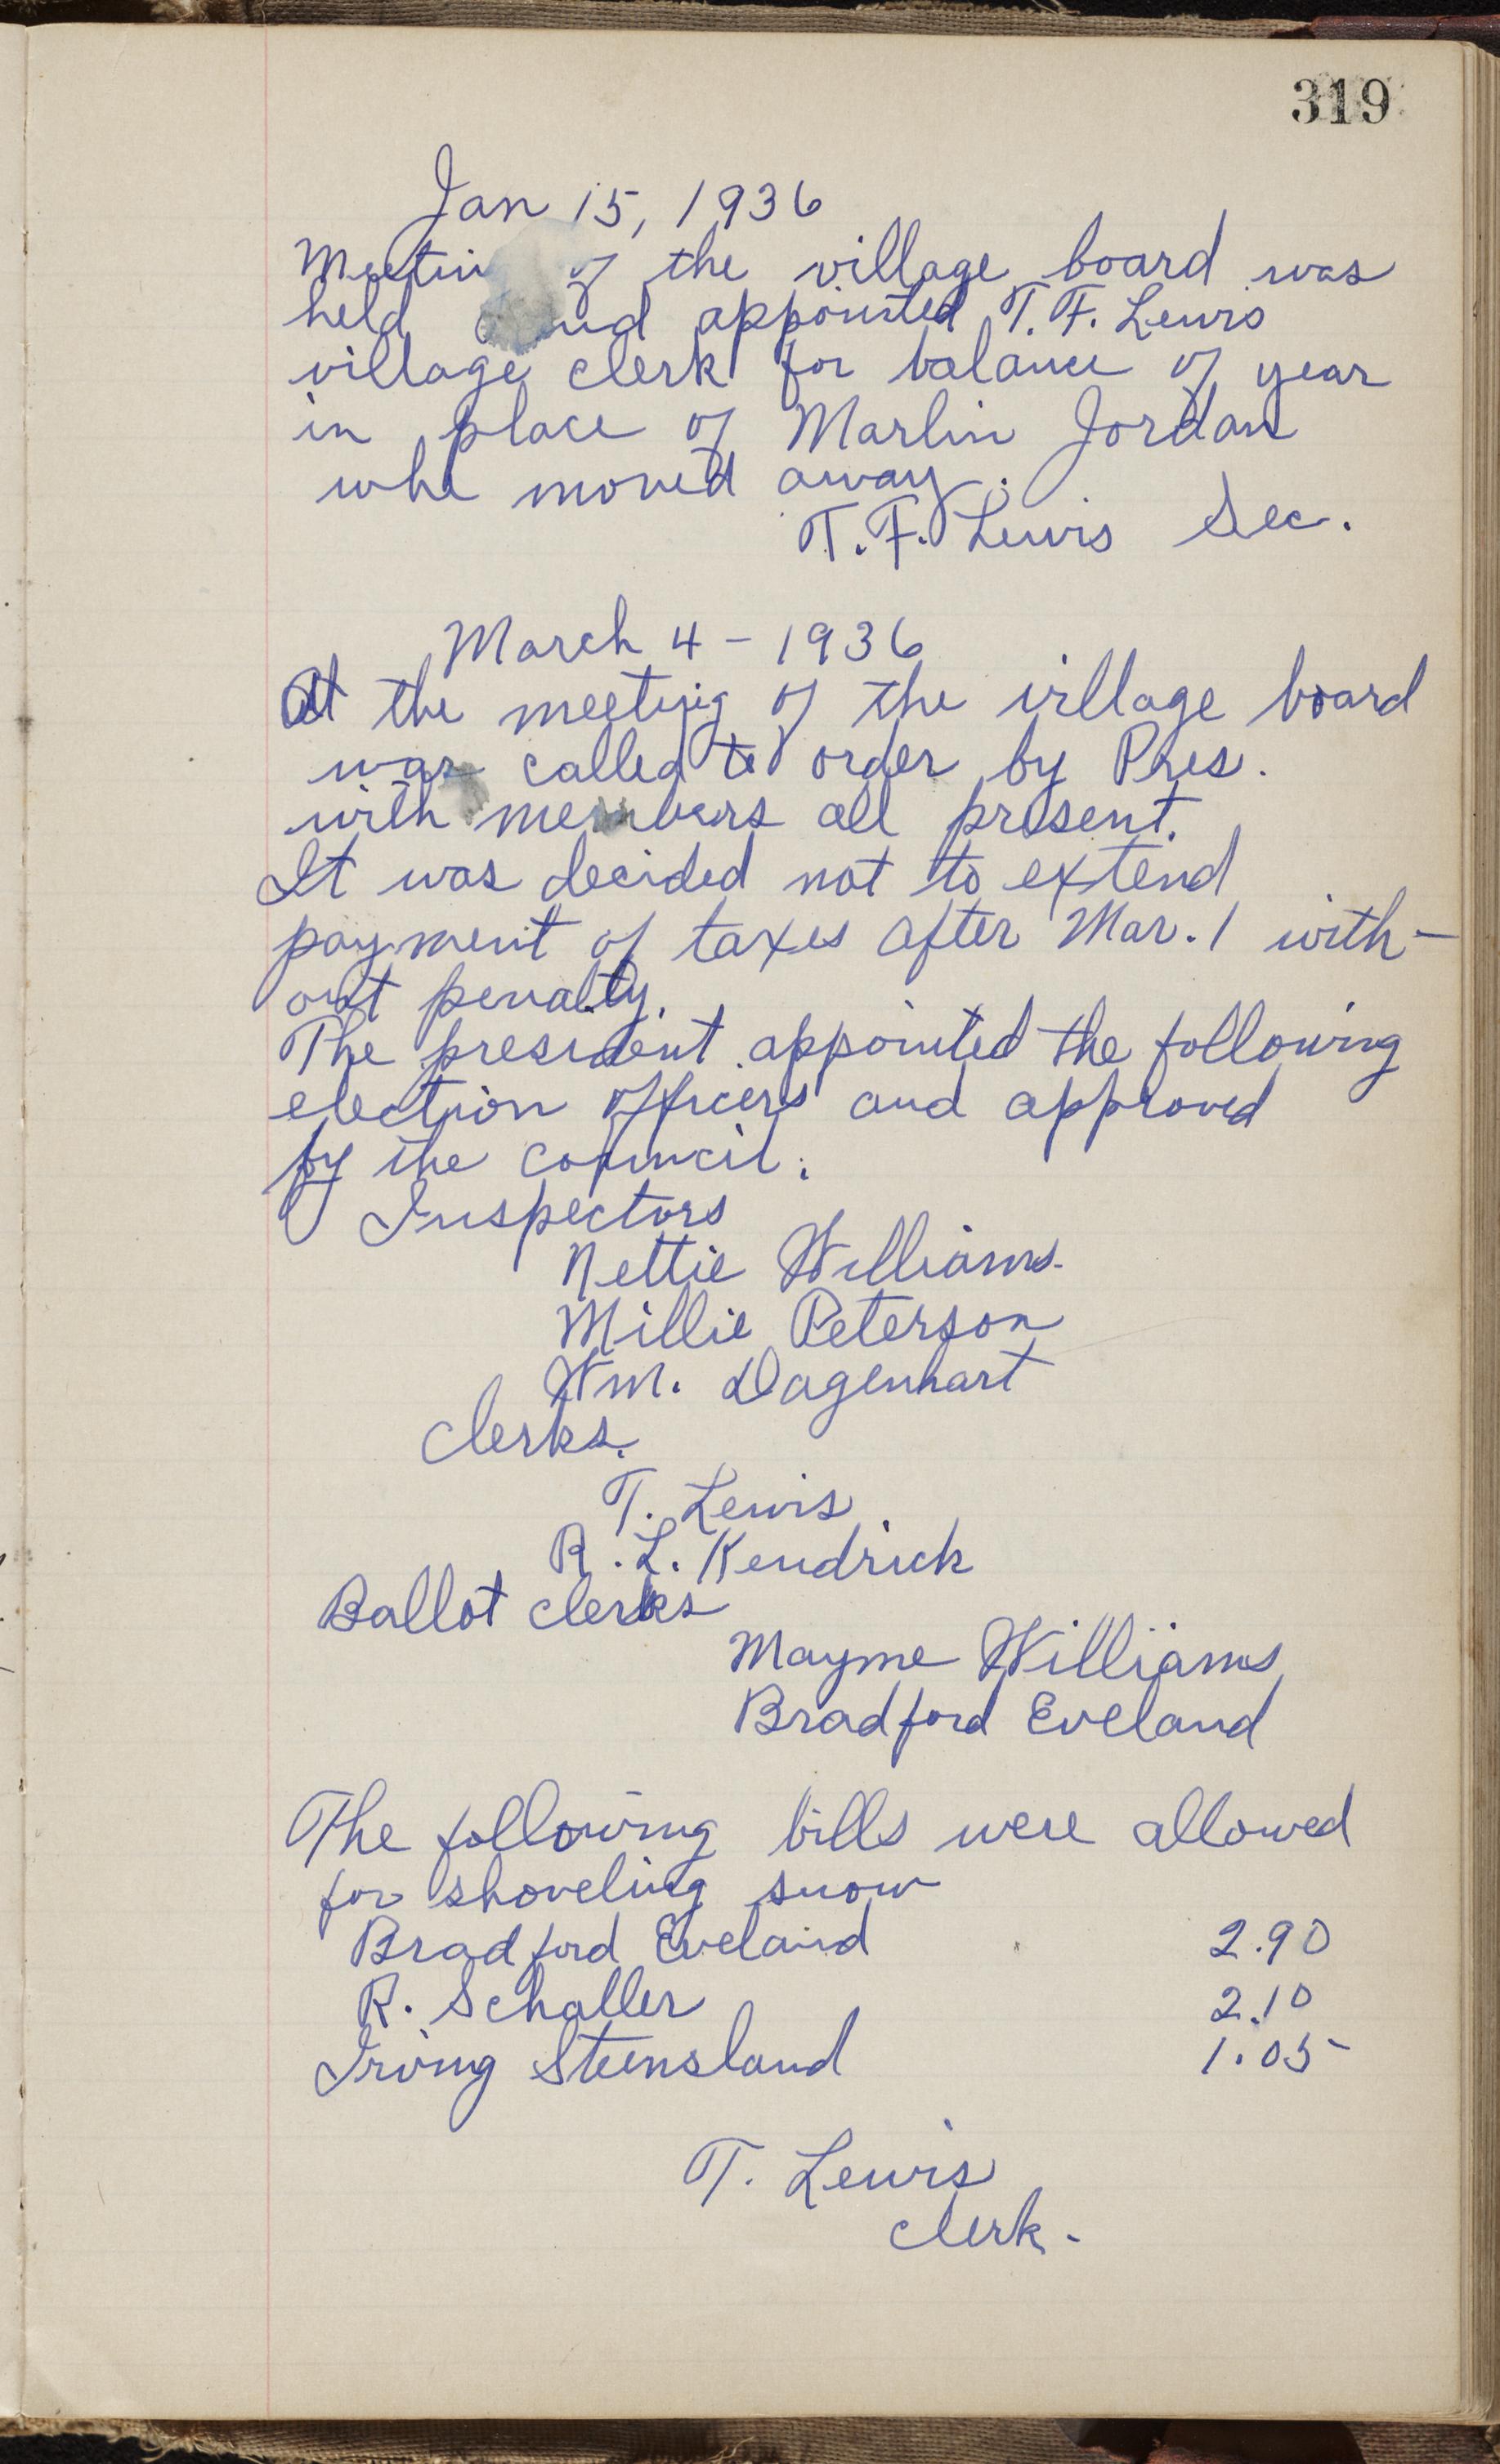 319
Jan 15, 1936
Meeting of the village board was
held and appointed T. F. Lewis
village clerk for balance of year
in place of Marlin Jordan
who moved away.
T. F. Lewis Sec.
March 4 - 1936
At the meeting of the village board
was called to order by Pres.
with members all present.
It was decided not to extend
payment of taxes after Mar. 1 with-
out penalty.
The president appointed the following
election officers and approved
by the council.
Inspectors
Nettie Williams.
Millie Peterson
Wm. Dagenhart
Clerks.
T. Lewis
R. L. Kendrick
Ballot clerks
Mayme Williams
Bradford Eveland
The following bills were allowed
for shoveling snow
Bradford Eveland 2.90
R. Schaller 2.10
Irving Steensland 1.05
T. Lewis
Clerk.